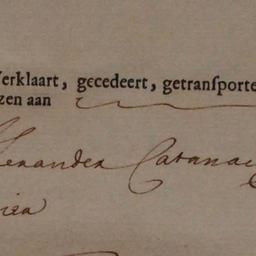 Verklaart, gecedeert, getransporte
zen aan
lexander Cavanac